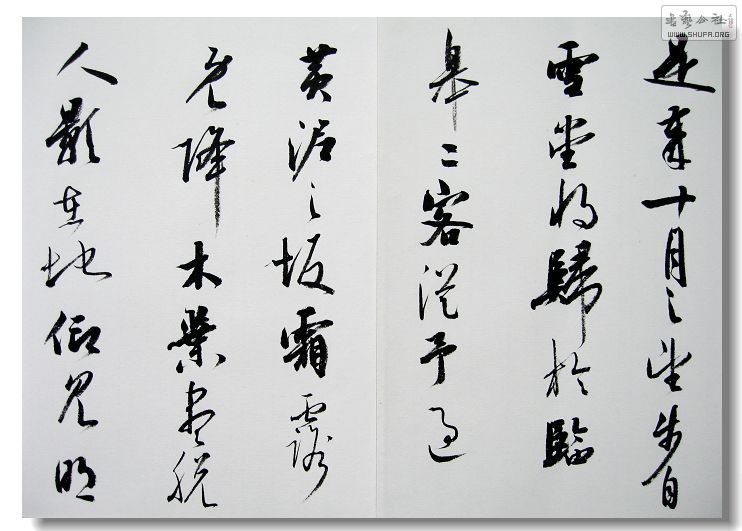 是歲十月之望步自
雪堂將歸於臨
皋二客從予過
黃泥之坂霜露
既降木葉盡脫
人影在地仰見明
书艺公社
WWW.SHUFA.ORG